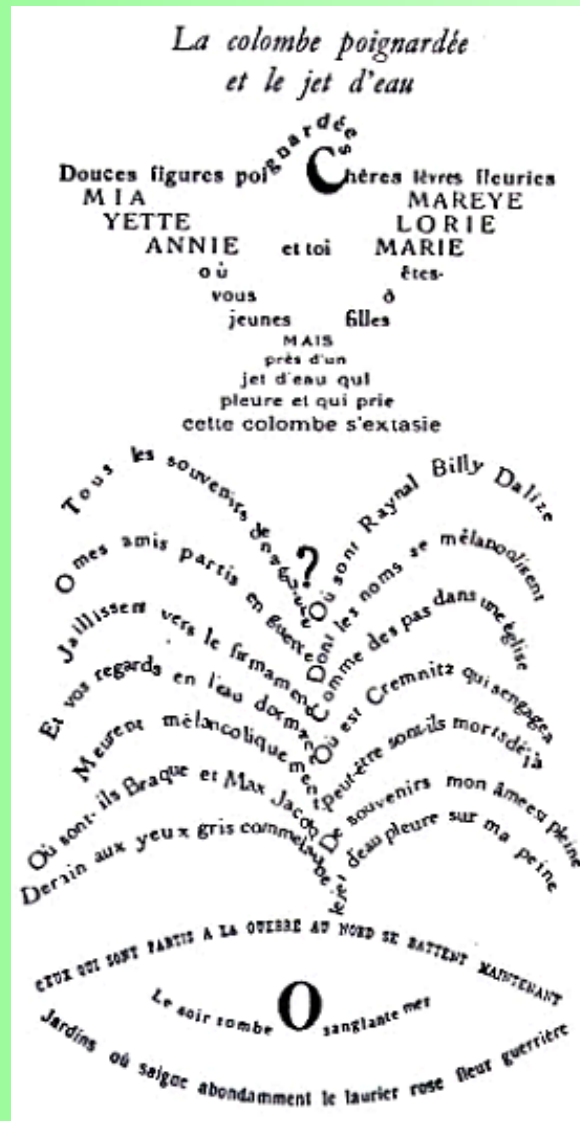 La colombe poignardée
et le jet d'eau
Douces figures poignardées Chères lèvres fleuries
MIA MAREYE
YETTE LORIE
ANNIE et toi MARIE
où êtes-
vous ô
jeunes filles
MAIS
près d'un
jet d'eau qui
pleure et qui prie
cette colombe s'extasie
Tous les souvenirs de naguère
?
O mes amis partis en guerre
Jaillissent vers le firmament
Et vos regards en l'eau dormant
Meurent mélancoliquement
Où sont-ils Braque et Max Jacob
Derain aux yeux gris comme l'aube
Où sont Raynal Billy Dalize
Dont les noms se mélancolisent
Comme des pas dans une église
Où est Cremnitz qui s'engagea
Peut-être sont-ils morts déjà
De souvenirs mon âme est pleine
Le jet d'eau pleure sur ma peine
CEUX QUI SONT PARTIS A LA GUERRE AU NORD SE BATTENT MAINTENANT
Le soir tombe O sanglante mer
Jardins où saigne abondamment le laurier rose fleur guerrière